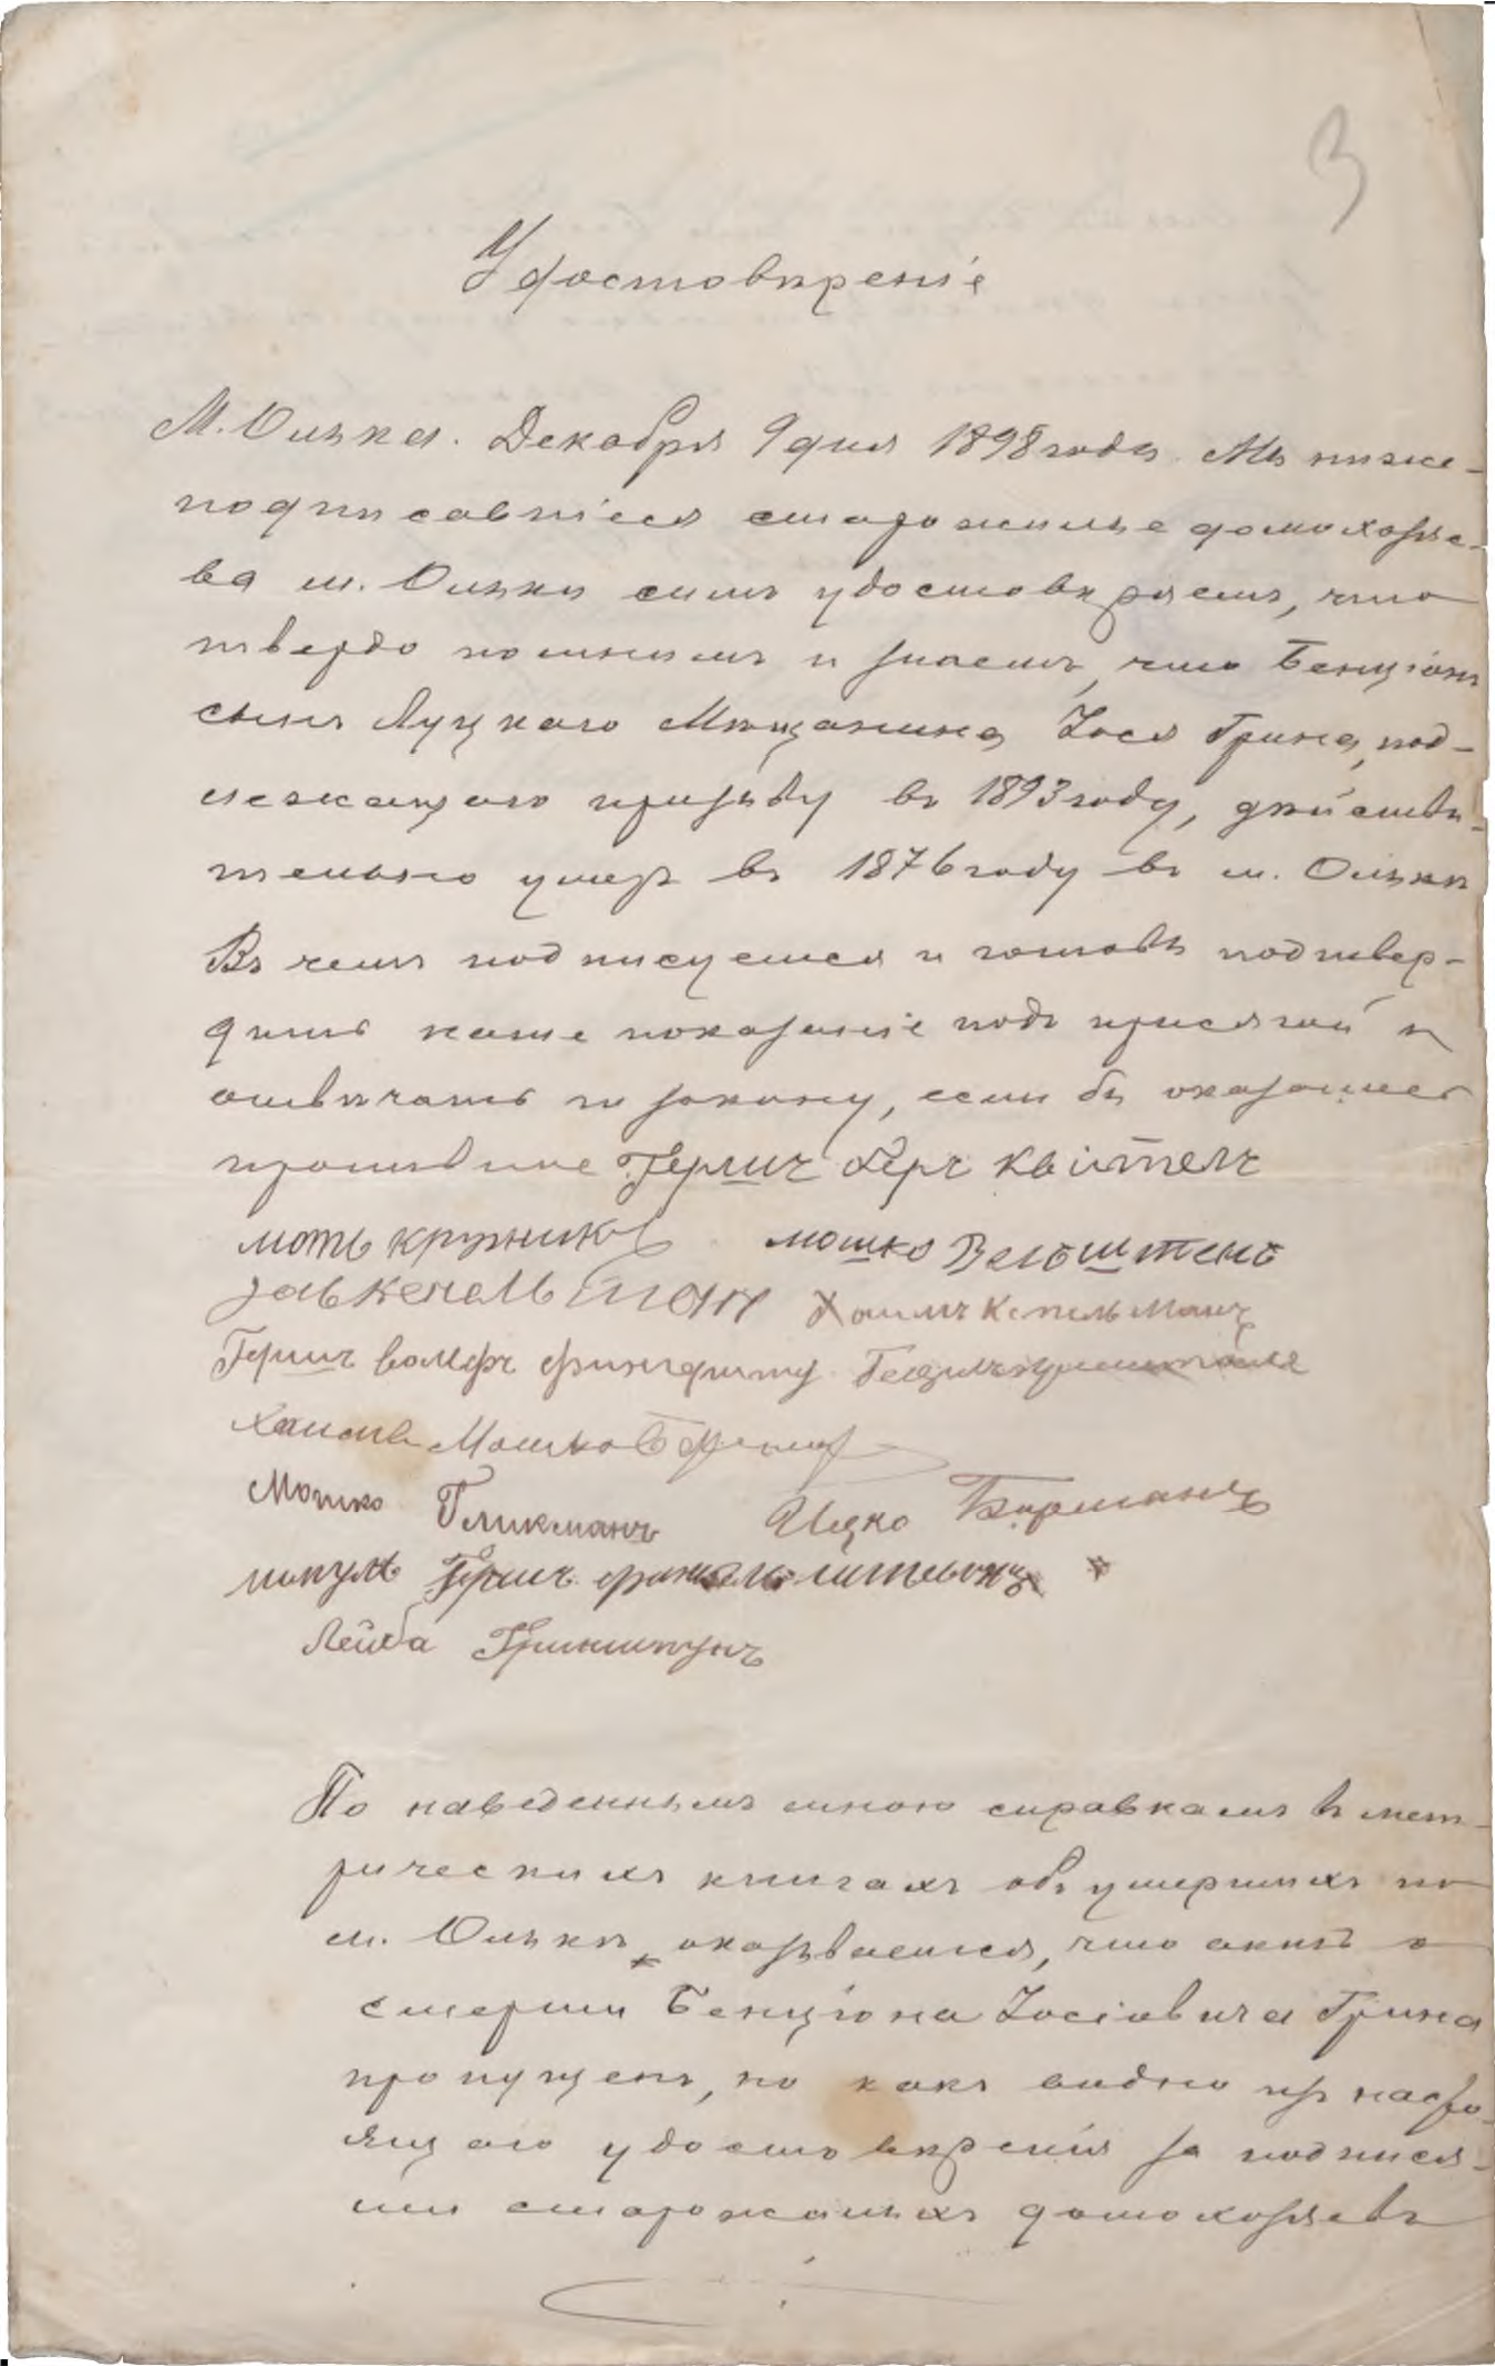 3
Удостовѣреніе
М. Олыка. Декабря 9 дня 1898 года. Мы ниже-
подписавшіеся старожилые домохозяе-
ва м. Олыки симъ удостовѣряемъ, что
твердо помнимъ и знаемъ, что Бенціонъ
сынъ Луцкаго Мѣщанина Іося Грина, под-
лежащаго призыву въ 1893 году, дѣйстви-
тельно умеръ въ 1876 году въ м. Олыкѣ
Въ чемъ подписуемся и готовы подтвер-
дить наше показаніе подъ присягой и
отвѣчать по закону, если бы оказалось
противное Гершъ Беръ Квітелъ
моть кружникъ мошко Велъштенъ
завь кечельман Хаимъ Кепельманъ
Гершъ волфъ
Хаимъ Мошко
Мошко Гликманъ Ицко Борманъ
Гершъ
Лейба Гринштунъ
По наведеннымъ мною справкамъ въ мет-
рическихъ книгахъ объ умершихъ по
м. Олыкѣ оказывается, что актъ о
смерти Бенціона Іосіовича Грина
пропущенъ, но какъ видно изъ насто-
ящаго удостовѣренія за подпися-
ми старожилыхъ домохозяевъ